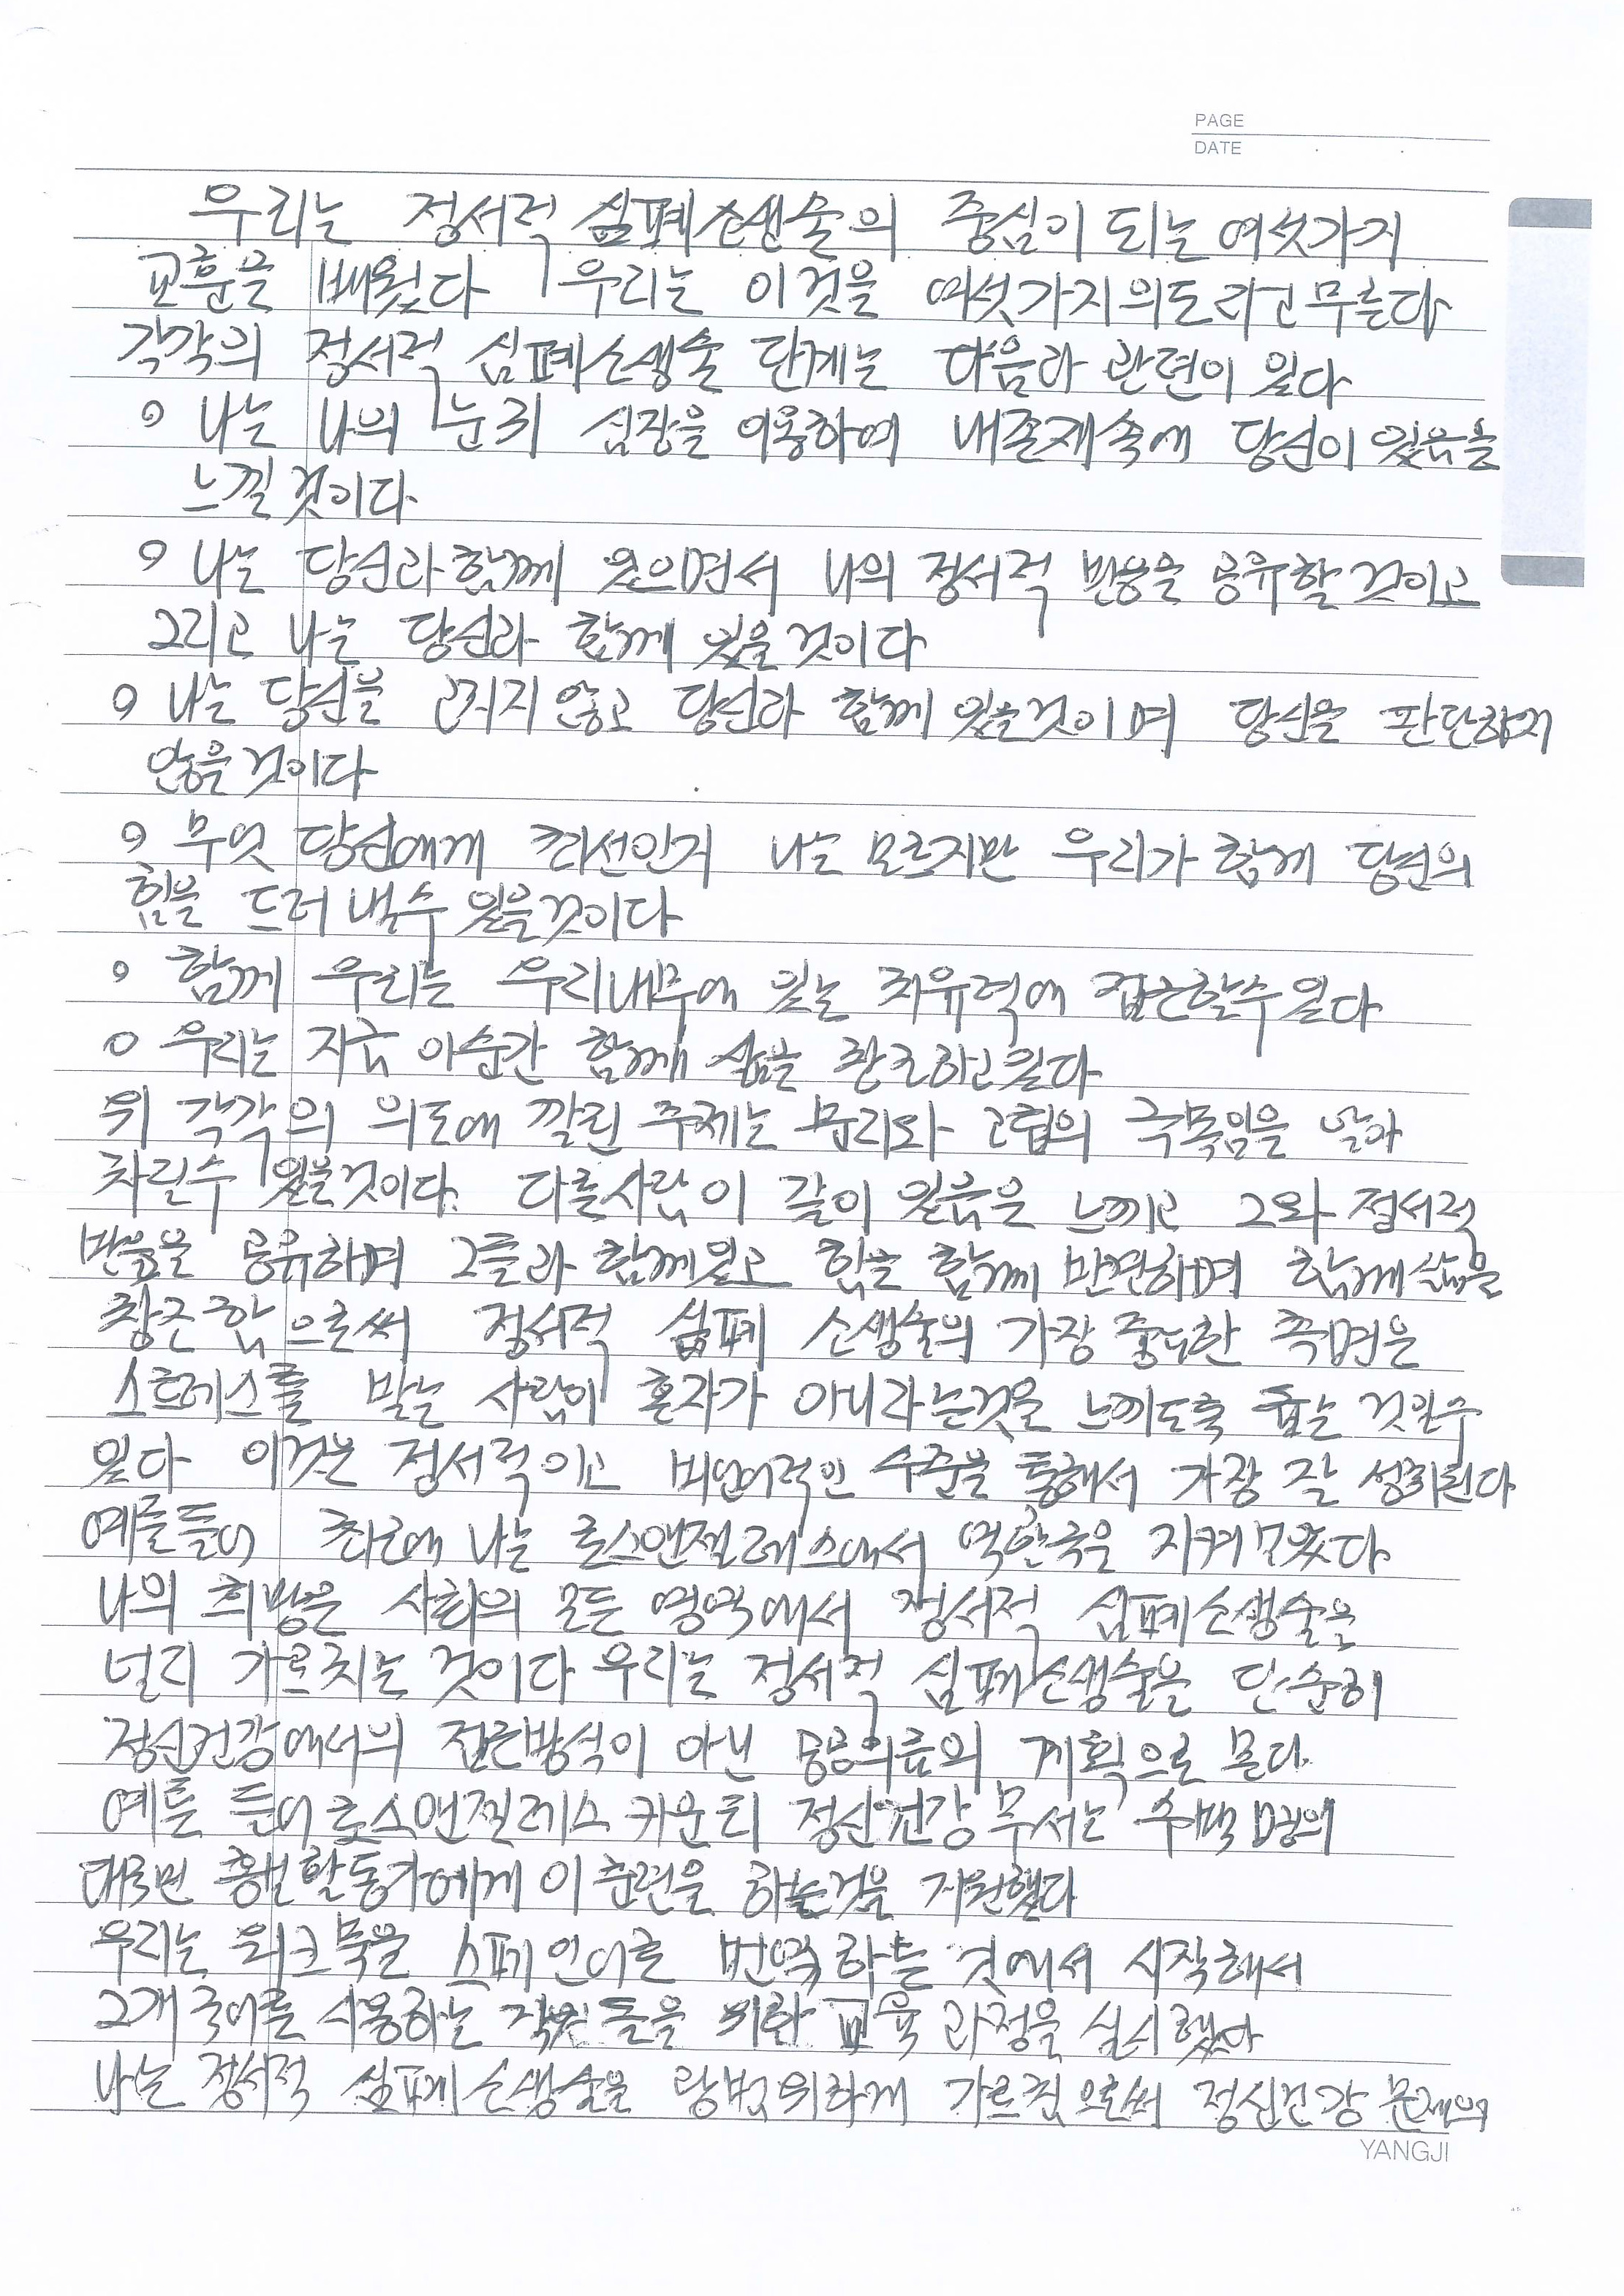 PAGE
DATE
우리는 정서적 심폐소생술의 중심이 되는 여섯가지
교훈을 배웠다 우리는 이것을 여섯가지의도라고 부른다
각각의 정서적 심폐소생술 단계는 다음과 관련이 있다
나는 나의 눈과 심장을 이용하여 내존재속에 당신이 있음을
느낄 것이다
나는 당신과 함께 있으면서 나의 정서적 반응을 공유할 것이고
그리고 나는 당신과 함께 있을 것이다
나는 당신을 고치지 않고 당신과 함께 있을것이며 당신을 판단하지
않을것이다
무엇 당신에게 최선인지 나는 모르지만 우리가 함께 당신의
힘을 드러 낼수 있을것이다
함께 우리는 우리내부에 있는 치유력에 접근할수있다
우리는 지금 이순간 함께 삶을 창조하고있다
위 각각의 의도에 깔린 주제는 분리와 고립의 극복임을 알아
차릴수 있을것이다. 다른사람이 같이 있음을 느끼고 그와 정서적
반응을 공유하며 그들과 함께있고 힘을 함께 발견하며 함께삶을
창조함으로써 정서적 심폐 소생술의 가장 중요한 측면은
스트레스를 받는 사람이 혼자가 아니라는것을 느끼도록 돕는 것일수
있다 이것은 정서적이고 비언어적인 수준을 통해서 가장 잘 성취된다
예를들어 최근에 나는 로스앤젤레스에서 역할극을 지켜보았다
나의 희망은 사회의 모든 영역에서 정서적 심폐소생술을
널리 가르치는 것이다 우리는 정서적 심폐소생술을 단순히
정신건강에서의 접근방식이 아닌 공공의료의 계획으로 본다.
예를 들어 로스앤젤레스 카운티 정신건강 부서는 수백 명의
대로변 활동가에게 이 훈련을 하는것을 지원했다
우리는 워크북을 스페인어로 번역하는 것에서 시작해서
2개 국어를 사용하는 직원들을 위한 교육 과정을 실시했다
나는 정서적 심폐소생술을 광범위하게 가르침으로써 정신건강 문제의
YANGJI